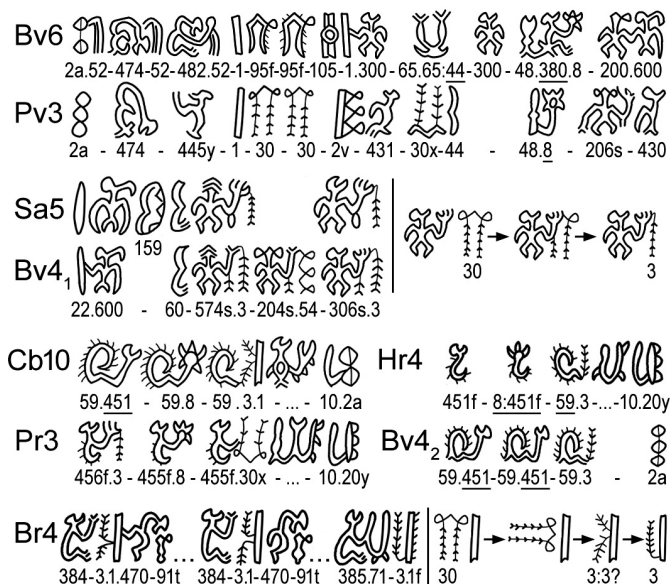 Bv6
2a.52-474-52-482.52-1-95f-95f-105-1.300-65.65:44-300-48.380.8-200.600
Pv3
2a - 474 - 445y - 1 - 30 - 30 - 2v - 431 - 30x-44 - 48.8 - 206s - 430
Sa5
159
Bv4₁
22.600 - 60-574s.3-204s.54-306s.3
30
3
Cb10
59.451 - 59.8 - 59.3.1 - ... - 10.2a
Hr4
451f - 8:451f - 59.3-...-10.20y
Pr3
456f.3 - 455f.8 - 455f.30x - ... - 10.20y
Bv4₂
59.451-59.451-59.3 - 2a
Br4
384-3.1.470-91t ... 384-3.1-470-91t ... 385.71-3.1f
30
3:3?
3